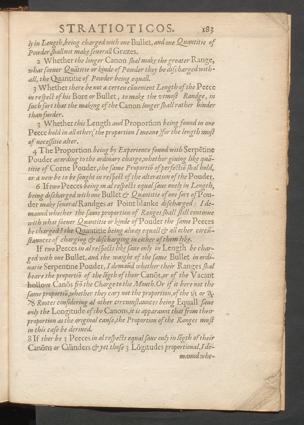 STRATIOTICOS. 183
ly in Length, being charged with one Bullet, and one Quantitie of
Powder shall not make severall Grates.
2 Whether the longer Canon shal make the greater Range,
what soever Quātitie or kinde of Powder they be discharged with-
all, the Quantitie of Powder being equall.
3 Whether there be not a certen convenient Length of the Peece
in respect of his Bore or Bullet, to make the utmost Range, in
such sort that the making of the Canon longer shall rather hinder
than further.
3 Whether this Length and Proportion being found in one
Peece hold in all other, the proportion I meane for the length must
of necessitie alter.
4 The Proportion being by Experience found with Serpētine
Pouder according to the ordinary charge, whether giving like quā-
titie of Corne Pouder, the same Proportiō of perfectiō shall hold,
or a new be to be sought in respect of the alteration of the Pouder.
6 If two Peeces being in al respects equal save onely in Length,
being discharged with one Bullet & Quantitie of one sort of Pou-
der make severall Randges at Point blanke discharged: I de-
maund whether the same proportion of Ranges shall still continue
with what soever Quantitie or kinde of Pouder the same Peeces
be charged? the Quantitie being alway equall & all other circū-
stances of charging & discharging in either of them like.
If two Peeces in al respects like save only in Length be char-
ged with one Bullet, and the waight of the same Bullet in ordi-
narie Serpentine Pouder, I demaūd whether their Ranges shal
beare the proportiō of the lēgth of their Canōs, or of the Vacant
hollow Canōs frō the Charge to the Mouth. Or if it beare not the
same proportiō, whether they cary not the proportion, of the
Rootes considering al other circumstances being Equall save
only the Longitude of the Canons, it is apparant that from their
proportion as the original cause, the Proportion of the Ranges must
in this case be derived.
8 If ther be 3 Peeces in al respects equal save only in lēgth of their
Canōns or Cilinders & yet those 3 Lōgitudes proportional, I de-
maund whe-